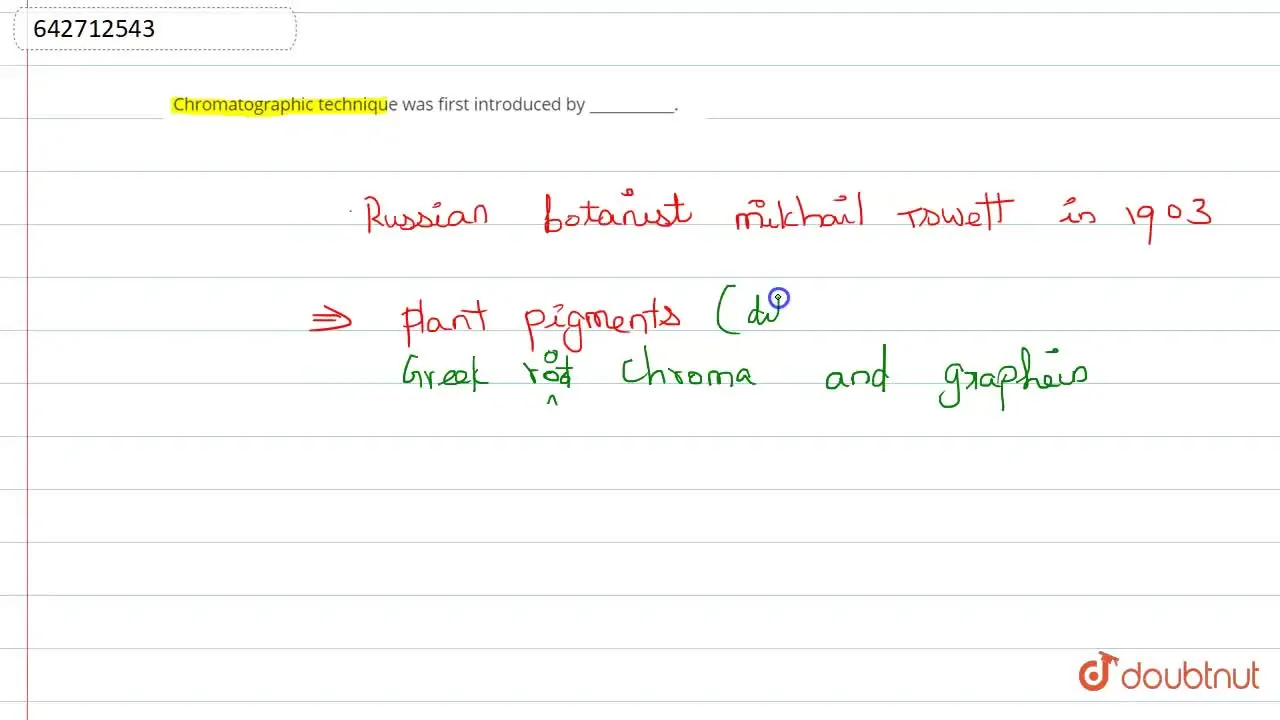 642712543
Chromatographic technique was first introduced by __________.
Russian botanist mikhail Tswett in 1903
⇒ plant pigments (di
Greek root chroma and graphein
doubtnut